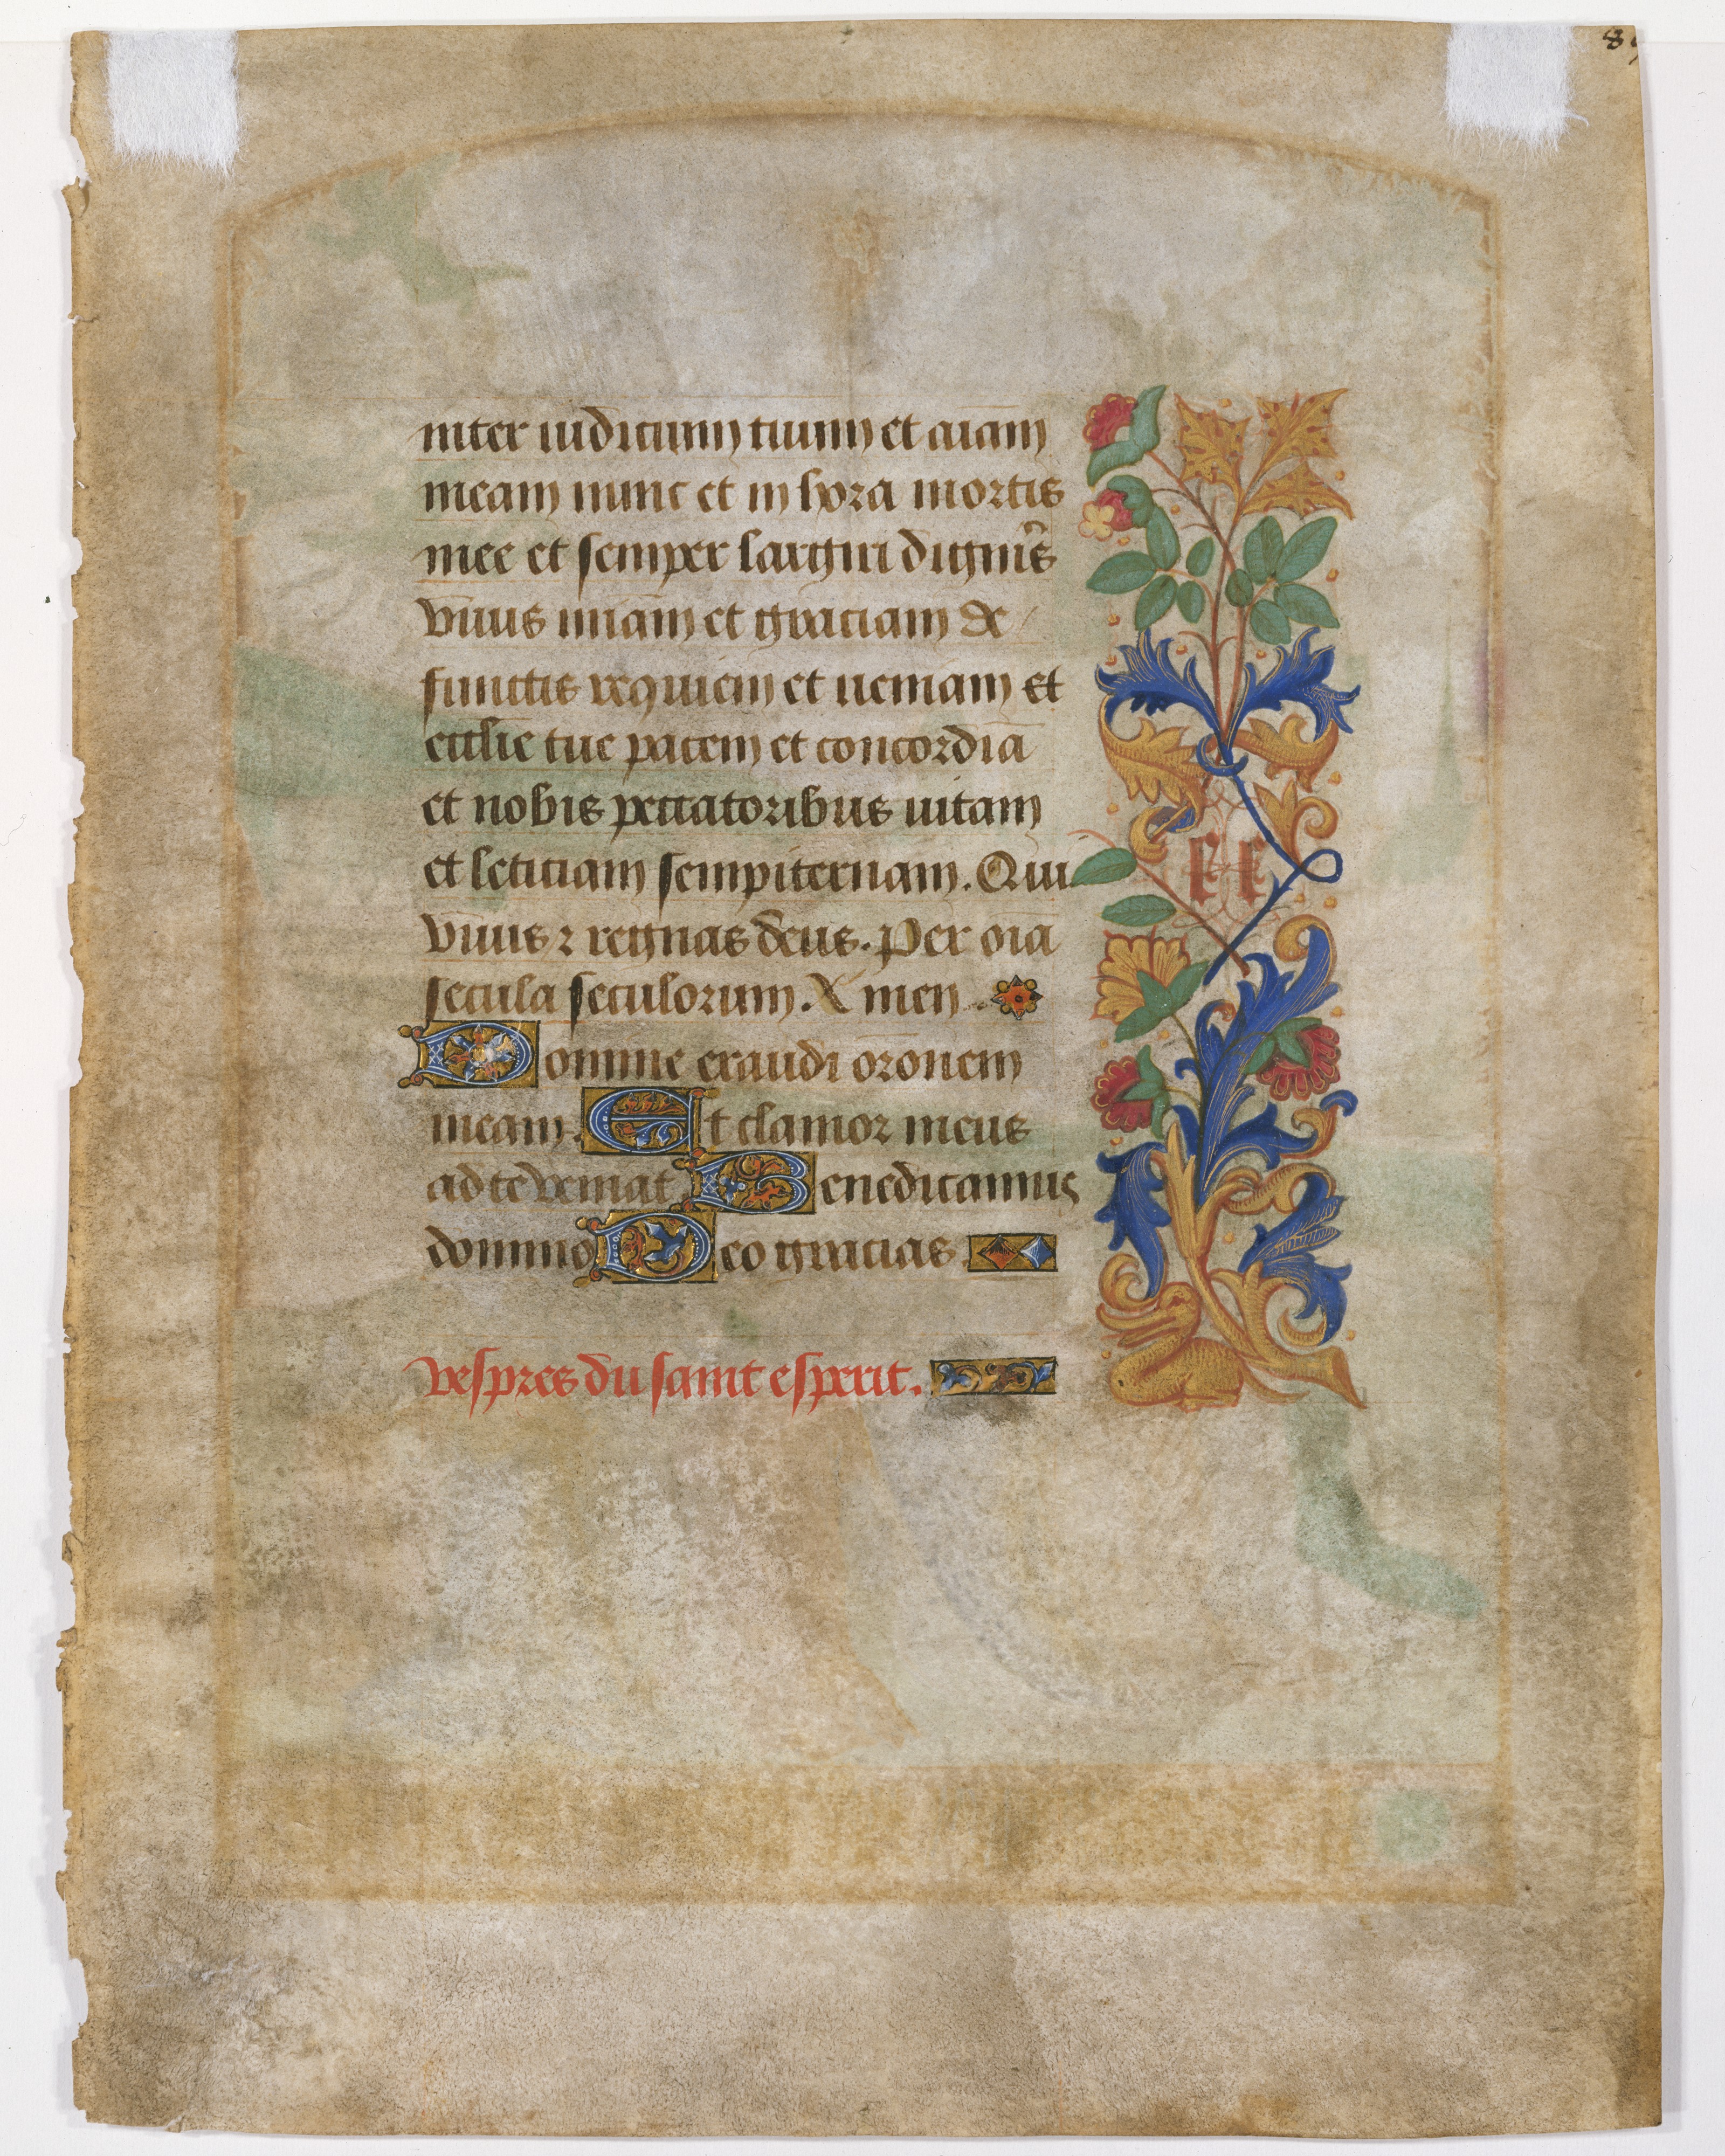 8
inter iudicium tuum et aīam
meam nunc et in hora mortis
mee et semper largiri digneris
viuis mīam et graciam de
functis requiem et ueniam et
ecclīe tue pacem et concordiā
et nobis peccatoribus uitam
et leticiam sempiternam. Qui
viuis ⁊ regnas deus. Per oīa
secula seculorum. Amen.
Domine exaudi orōnem
meam. Et clamor meus
ad te veniat. Benedicamus
domino Deo gracias.
vespres du saint esperit.